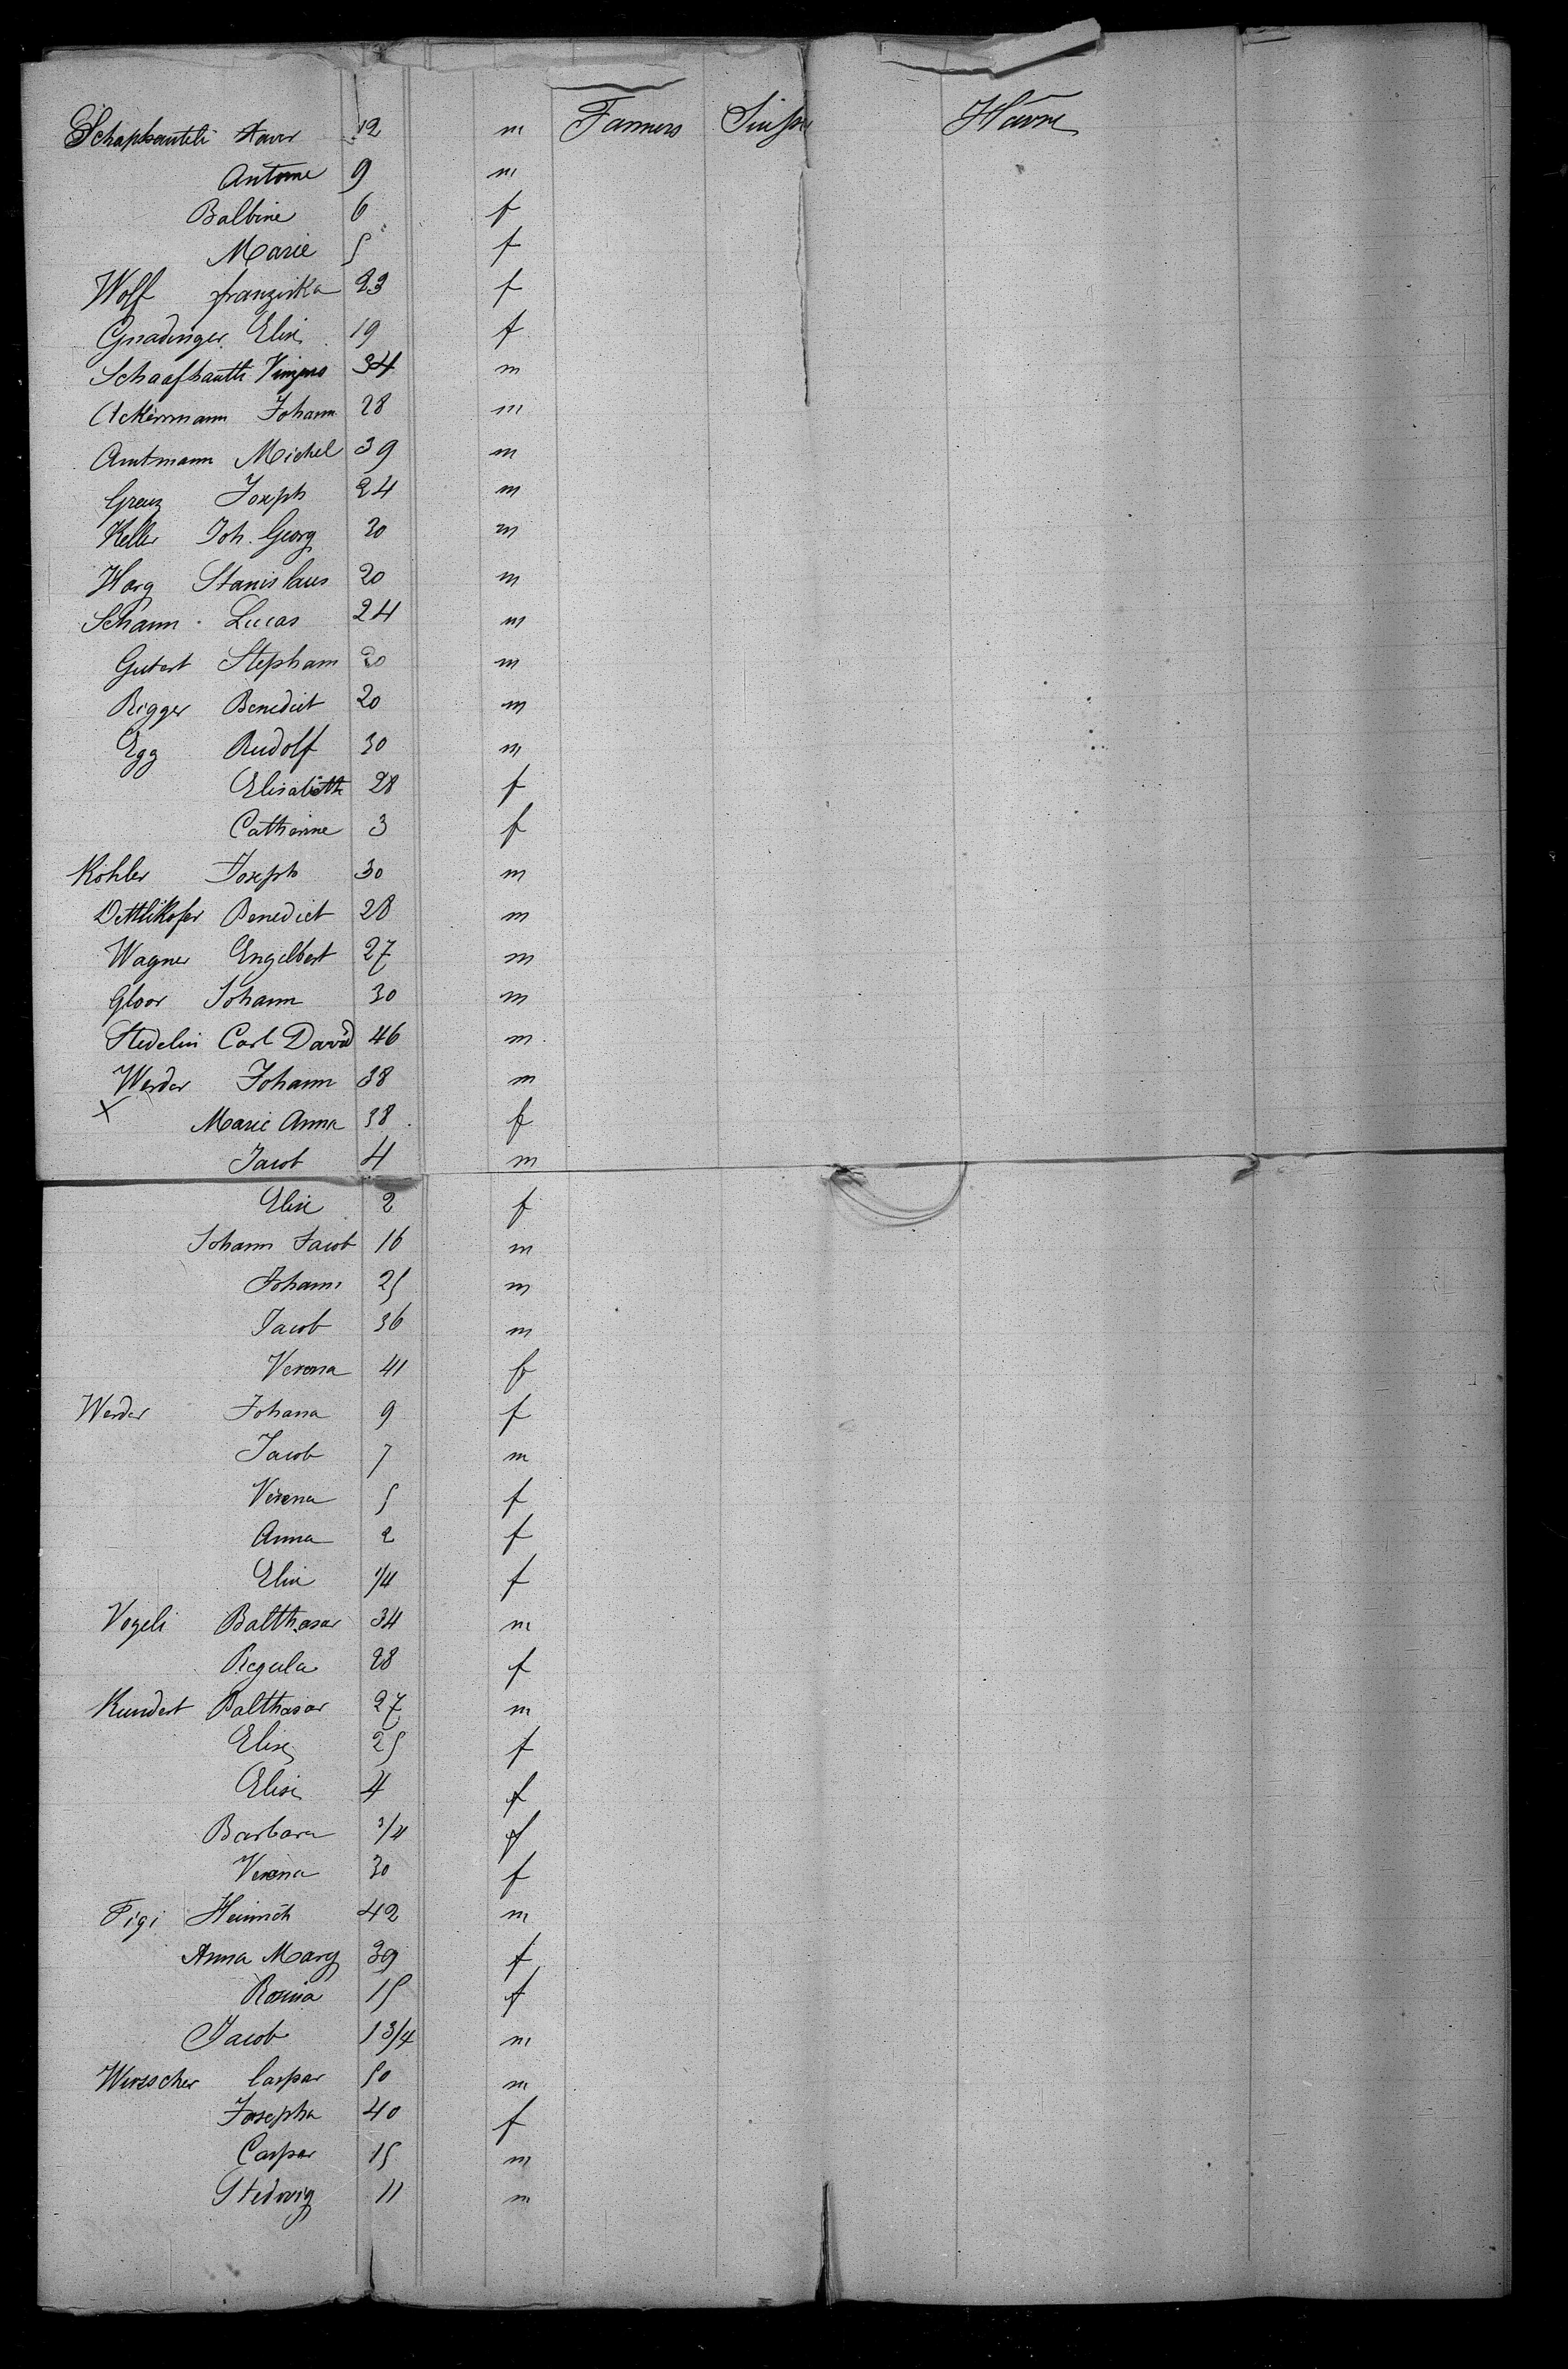 Schapkauteli Xaver 12 m Farmers Suisse Havre
Antoine 9 m
Balbine 6 f
Marie 5 f
Wolf franziska 23 f
Gnadinger Elise 19 f
Schaafhauth Vinzens 34 m
Ackermann Johann 28 m
Amtmann Michel 39 m
Greuz Joseph 24 m
Keller Joh. Georg 30 m
Harg Stanislaus 20 m
Schann Lucas 24 m
Gutert Stepham 20 m
Rigger Benedict 20 m
Egg Rudolf 30 m
Elisabeth 28 f
Catherine 3 f
Kohler Joseph 30 m
Dettlikofer Benedict 28 m
Wagner Engelbert 27 m
Gloor Johann 30 m
Stedelin Carl David 46 m
Werder Johann 38 m
X Marie Anna 38 f
Jacob 4 m
Elise 2 f
Johann Jacob 16 m
Johann 25 m
Jacob 36 m
Verena 41 f
Werder Johana 9 f
Jacob 7 m
Verena 5 f
Anna 2 f
Elise 1/4 f
Vogeli Balthasar 34 m
Regula 28 f
Kundert Balthasar 27 m
Elise 25 f
Elise 4 f
Barbara 3/4 f
Verena 30 f
Figi Heinrich 42 m
Anna Marg 39 f
Rosina 15 f
Jacob 1 3/4 m
Wirsscher Caspar 50 m
Josepha 40 f
Caspar 15 m
Hedwig 11 m